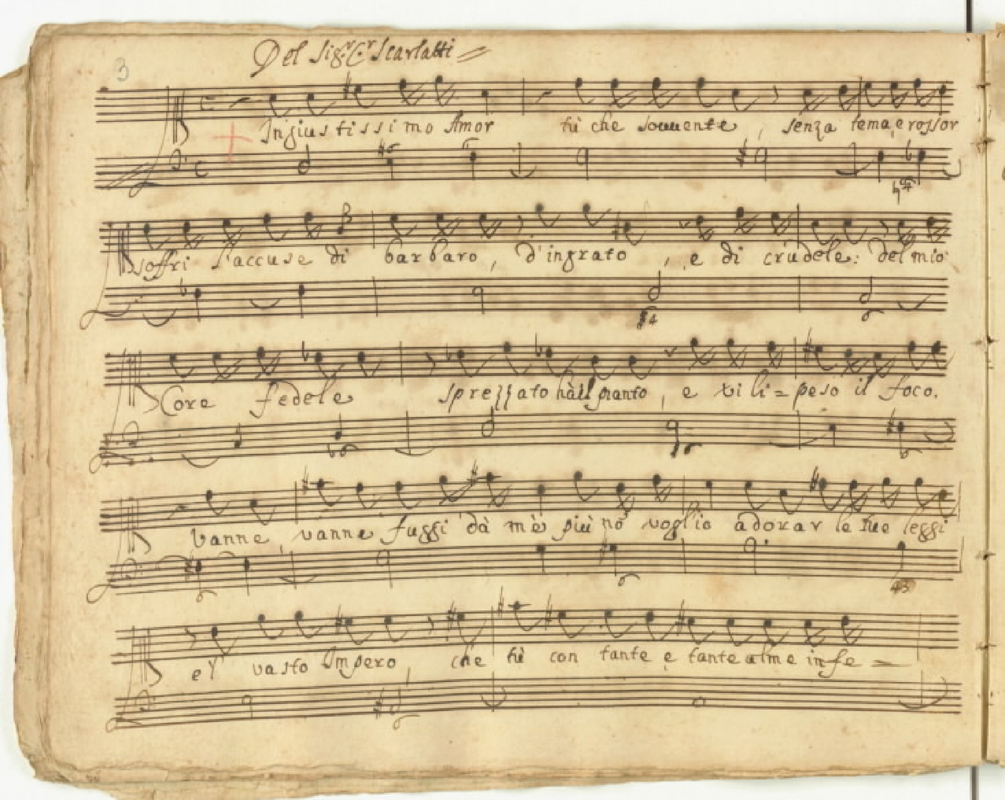 3
Del Sig.r C.r Scarlatti
Ingiustissimo Amor tù che souuente, senza tema, e rossor
soffri l'accuse di barbaro, d'ingrato, e di crudele: del mio
Core fedele sprezzato hà il pianto, e vili=peso il foco.
vanne vanne fuggi da mè più nõ voglio adorar le tue leggi
e'l vasto Impero, che tù con tante e tante alme infe=